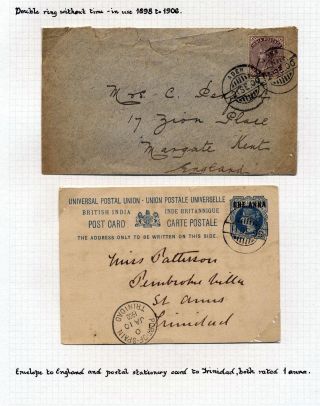 Double ring without time - in use 1898 to 1906.
Mrs. C.
17 Zion Place
Margate Kent
England
UNIVERSAL POSTAL UNION - UNION POSTALE UNIVERSELLE
BRITISH INDIA INDE BRITANNIQUE
POST CARD CARTE POSTALE
THE ADDRESS ONLY TO BE WRITTEN ON THIS SIDE.
ONE ANNA
Miss Patterson
Pembroke Villa
St Anns
Trinidad
PORT-OF-SPAIN
JA 10
TRINIDAD
Envelope to England and postal stationary card to Trinidad, both rated 1 anna.